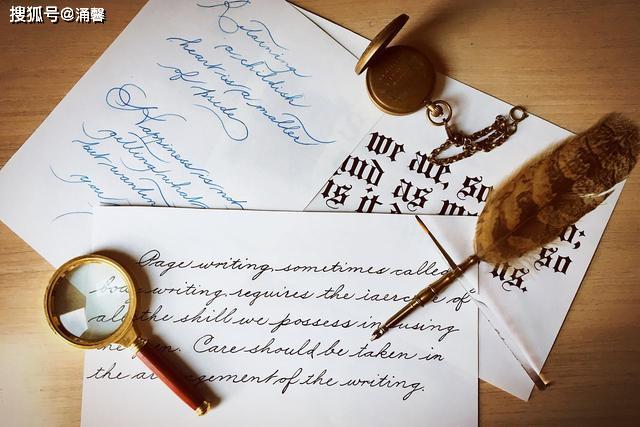 搜狐号@涌馨
Retaining
a childish
heart is a matter
of pride
Happiness is not
getting what
but
you
we are, so
and as
is it
so
us.
Page writing, sometimes called
body writing, requires the
all the skill we possess in using
the pen. Care should be taken in
the arrangement of the writing.